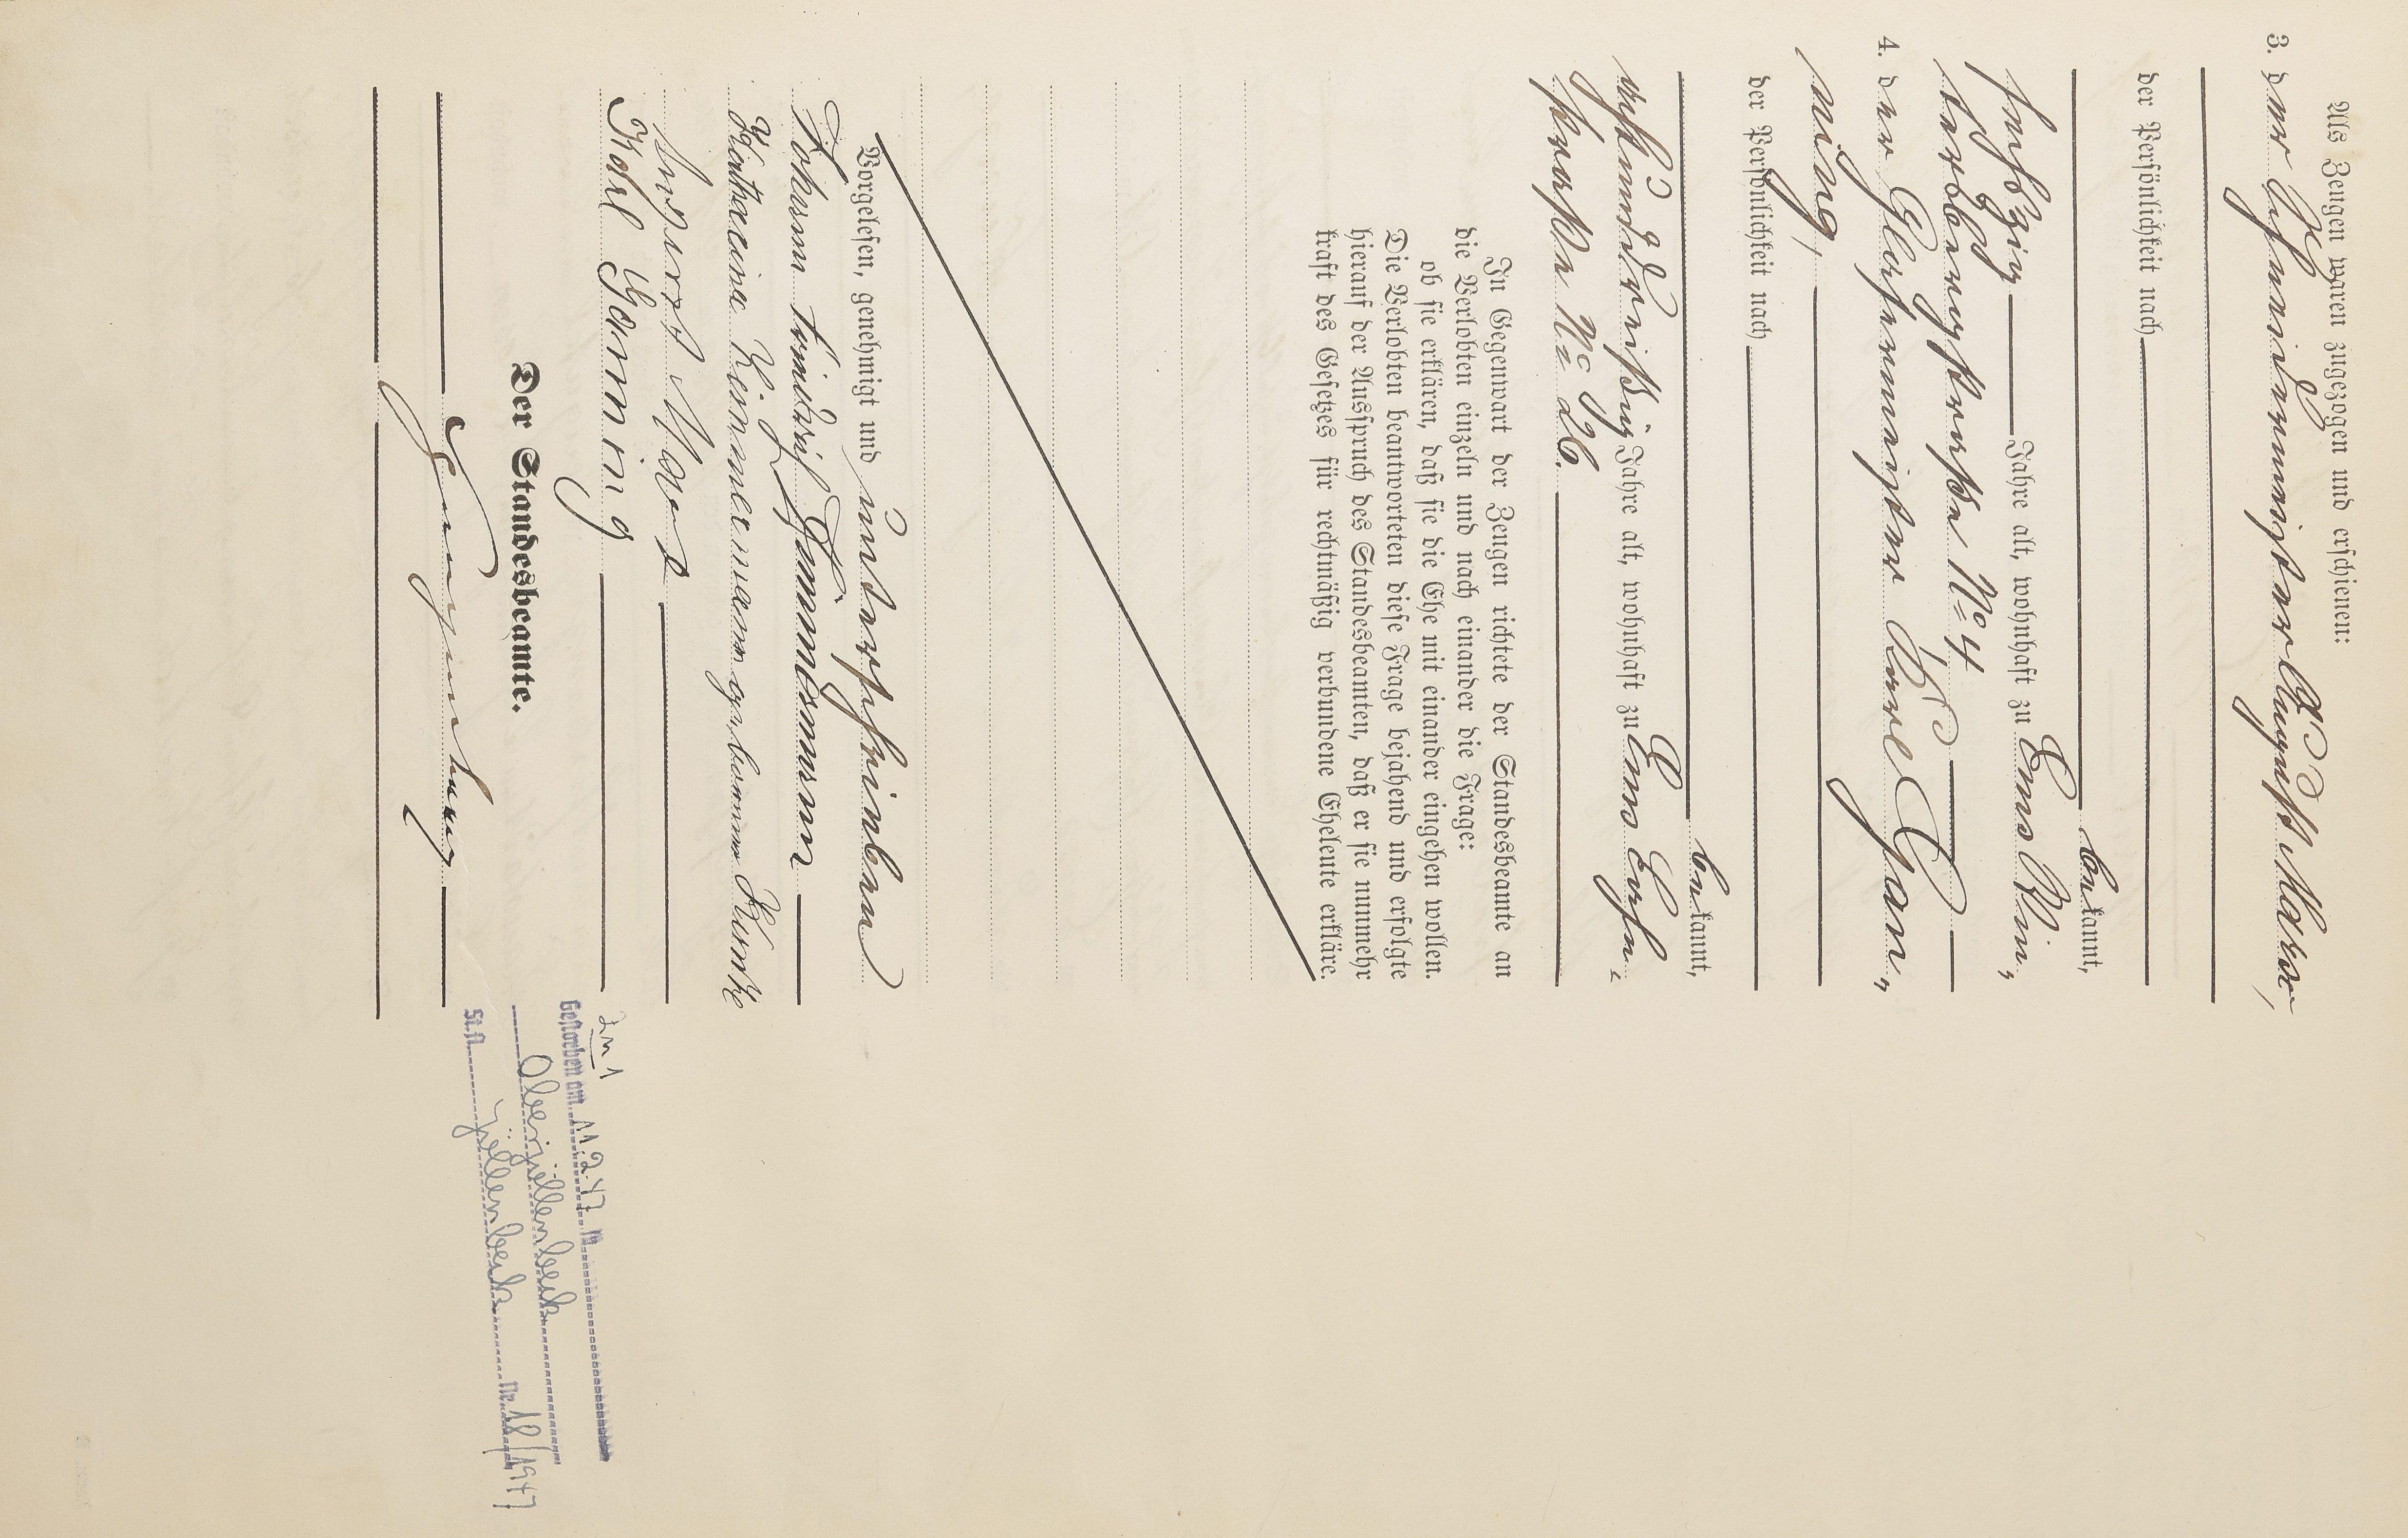 Als Zeugen waren zugezogen und erschienen:
3. der Schneidermeister August Marx,
der Persönlichkeit nach
bekannt,
fünfzig Jahre alt, wohnhaft zu Ems Win-
tersbergstraße No 4
4. der Glasermeister Karl Gan-
ning,
der Persönlichkeit nach
bekannt,
achtunddreißig Jahre alt, wohnhaft zu Ems Lahn-
straße No 26.
In Gegenwart der Zeugen richtete der Standesbeamte an
die Verlobten einzeln und nach einander die Frage:
ob sie erklären, daß sie die Ehe mit einander eingehen wollen.
Die Verlobten beantworteten diese Frage bejahend und erfolgte
hierauf der Ausspruch des Standesbeamten, daß er sie nunmehr
kraft des Gesetzes für rechtmäßig verbundene Eheleute erkläre.
Vorgelesen, genehmigt und unterschrieben
Johann Zimmermann
Zimmermann geborene
August Marx
Karl Ganning
Der Standesbeamte.
Zu 1
Gestorben am 11.2.47 in
Oberjöllenbeck
St.A. Jöllenbeck Nr. 18/1947